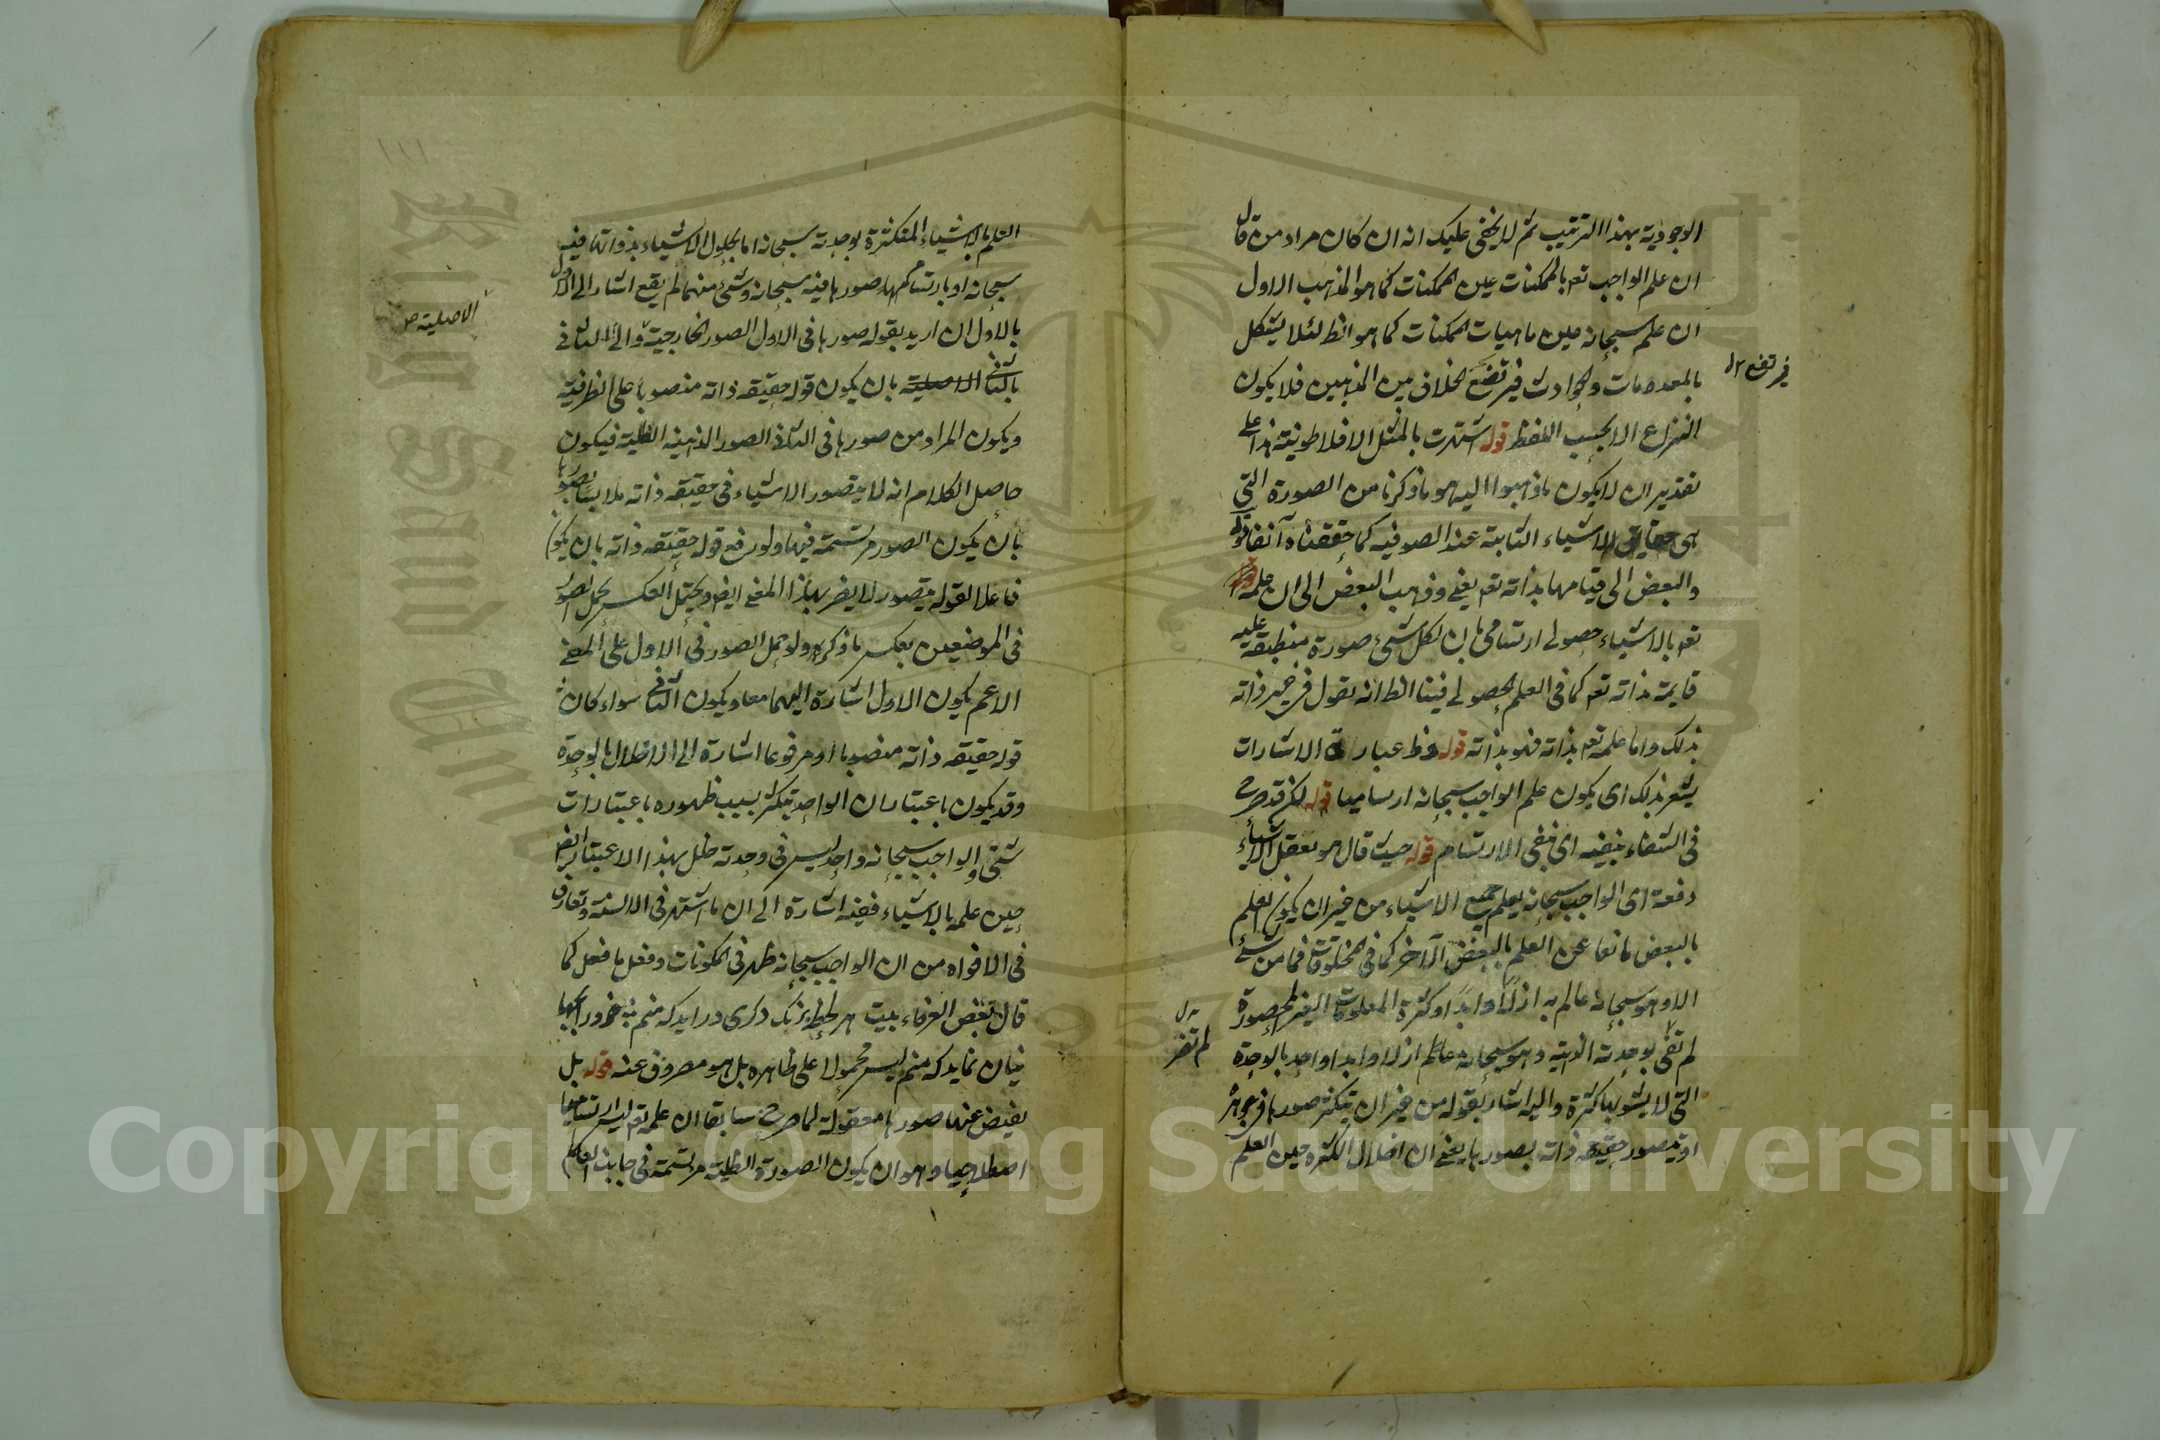 الوجودية بهذا الترتيب ثم لا يخفى عليك انه ان كان مراد من قال
ان علم الواجب تعه بالممكنات عين الممكنات كما هو المذهب الاول
ان علم سبحانه عين ماهيات الممكنات كما هو الظ لئلا يشكل
بالمعدومات والحوادث فيرتفع الخلاف بين المذهبين فلا يكون
فيرتفع
النزاع الا بحسب اللفظ قوله اشتهرت بالمثل الافلاطونية هذا على
تقدير ان لا يكون ما ذهبوا اليه هو ما ذكرنا من الصورة التي
هى حقايق الاشياء الثابتة عند الصوفيه كما حققناه آنفا قوله
والبعض الى قيامها بذاته تعه يعنى وذهب البعض الى ان علمه
تعه بالاشياء حصولى ارتسامى بان لكل شئ صورة منطبقة عليه
قايمة بذاته تعه كما فى العلم الحصولى فينا الظ انه يقول فى غير ذاته
بذلك واما علمه تعه بذاته فهو بذاته قوله عبارة الاشارات
يشعر بذلك اى يكون علم الواجب سبحانه ارتساميا قوله لكن قد صرح
فى الشفاء بنفيه اى بنفى الارتسام قوله حيث قال هو يعقل الاشياء
دفعة اى الواجب سبحانه يعلم جميع الاشياء من غير ان يكون العلم
بالبعض مانعا عن العلم بالبعض الآخر كما فى المخلوقات فما من شئ
الا وهو سبحانه عالم به ازلا وابدا وكثرة المعلومات الغير المحصورة
لم بوحدته الذاتية وهو سبحانه عالم ازلا وابدا واحد بالوحدة
التى لا يشوبها كثرة واليه اشار بقوله من غير ان يتكثر صورها فى جوهره
او يتصور حقيقة ذاته بصورها يعنى ان اظلال الكثرة حين العلم
العلم بالاشياء المتكثرة بوحدته سبحانه اما بحلول الاشياء بذواتها فيه
سبحانه او بارتسام صورها فيه سبحانه وشئ منهما لم يقع اشار الى الاول
بالاول ان اريد بقوله صورها فى الاول الصور الخارجية والى الثانى
الاصلية صح
بالثانى بان يكون قوله حقيقة ذاته منصوبا على الظرفية
ويكون المراد من صورها فى الثانى الصور الذهنيه الظلية فيكون
حاصل الكلام انه لا يتصور الاشياء فى حقيقة ذاته بصورها
بان يكون الصور مرتسمة فيها ولو رفع قوله حقيقة ذاته بان يكون
فاعلا لقوله يتصور لا يضر بهذا المعنى ايض ويحتمل العكس بحمل الصور
فى الموضعين بعكس ما ذكره ولو حمل الصور فى الاول على المعنى
الاعم يكون الاول اشارة اليهما معا ويكون الثانى سواء كان
قوله حقيقة ذاته منصوبا او مرفوعا اشارة الى الاظلال بالوحدة
وقد يكون باعتبار ان الواحد يتكثر بسبب ظهوره باعتبارات
شتى والواجب سبحانه واحد ليس فى وحدته ظل بهذا الاعتبار ايض
حين علمه بالاشياء ففيه اشارة الى ان ما اشتهر فى الالسنة وتعارف
فى الافواه من ان الواجب سبحانه ظهر فى المكونات وفعل ما فعل كما
قال بعض العرفاء بيت هر لحظه بزنك دكرى در ايد كه منم
نمايد كه منم ليس محمولا على ظاهره بل هو مصروف عنه قوله بل
يفيض عنها صورها معقولة لما صرح سابقا ان علمه تعه ليس ارتساميا
اصطلاحيا وهو ان يكون الصورة الظلية مرتسمة فى جانب العالم
Copyright © King Saud University